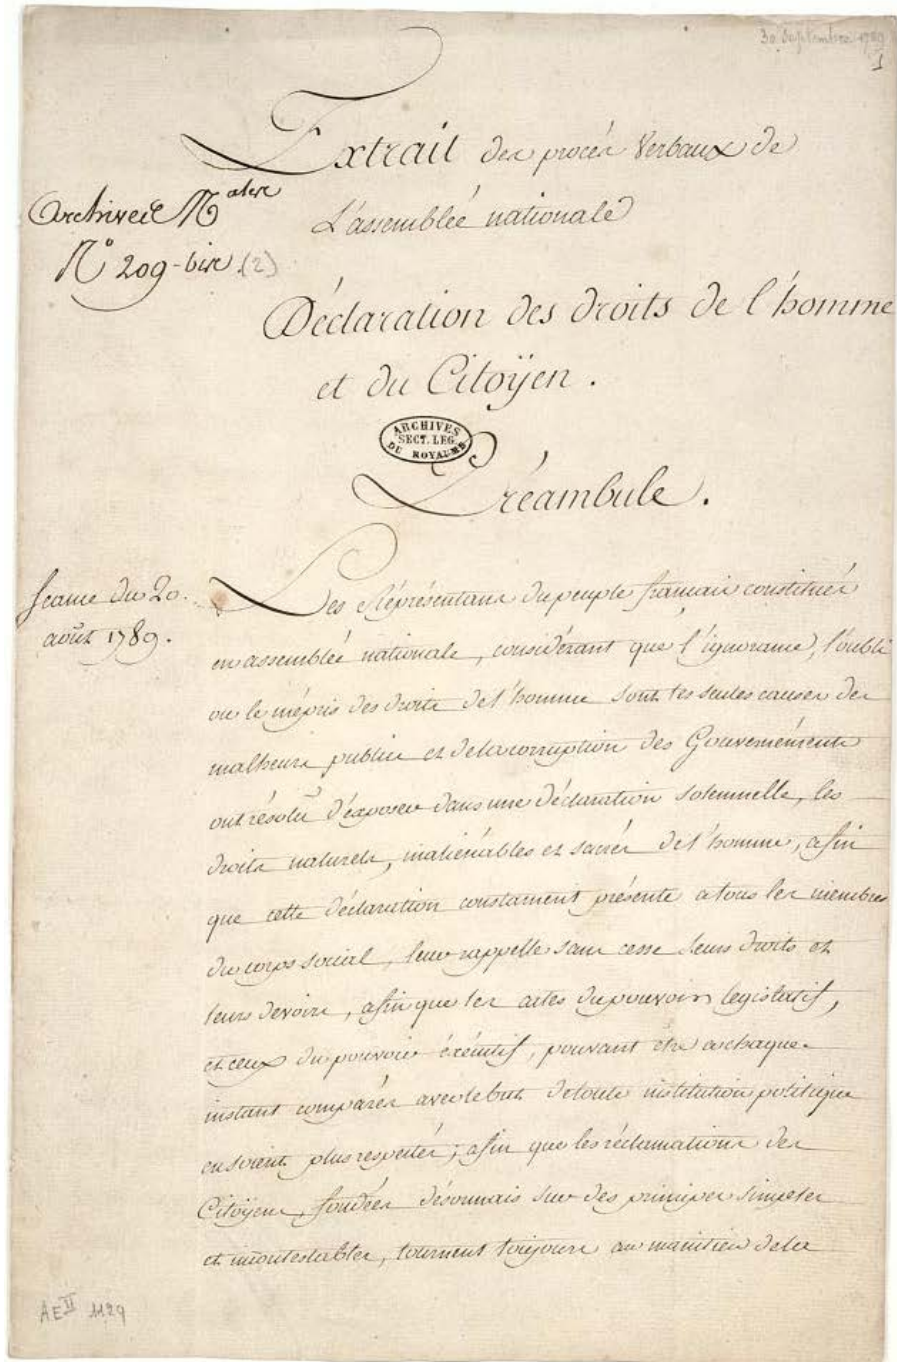 30 Septembre 1789
1
Extrait des procès Verbaux de
L'assemblée nationale
Archives Nales
N° 209-bis (2)
Déclaration des droits de l'homme
et du Citoÿen.
ARCHIVES
SECT. LEG.
DU ROYAUME
Préambule.
Séance du 20.
août 1789.
Les Réprésentans du peuple français constitués
en assemblée nationale, considérant que l'ignorance, l'oubli
ou le mépris des droits de l'homme sont les seules causes des
malheurs publics et de la corruption des Gouvernéments
ont résolu d'exposer dans une déclaration solemnelle, les
droits naturels, inaliénables et sacrés de l'homme, afin
que cette déclaration constament présente a tous les membres
du corps social, leur rappelle sans cesse leurs droits et
leurs devoirs, afin que les actes du pouvoir legislatif,
et ceux du pouvoir éxécutif, pouvant etre a chaque
instant comparés avec le but de toute institution politique
en soient plus respectés; afin que les réclamations des
Citoÿens, fondées désormais sur des principes simples
et incontestables, tournent toujours au maintien de la
AE II 1129